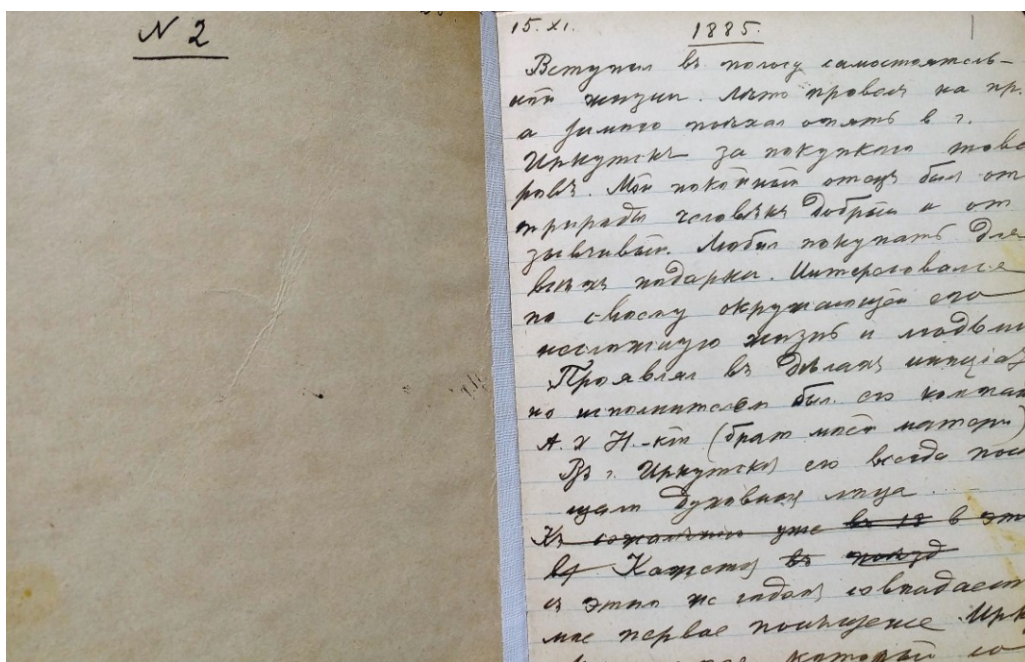 N 2
15. XI.
1885.
1
Вступил въ полосу самостоятель-
ной жизни. Лѣто провелъ на пр.
а зимою поѣхал опять в г.
Иркутскъ за покупкою това
ровъ. Мой покойный отецъ был от
природы человѣкъ добрый и от
зывчивый. Любил покупать для
всѣхъ подарки. Интересовался
по своему окружающей его
несложную жизнь и людьми
Проявлял въ дѣлахъ инициа
но исполнителем был его компан
А. Х Н.-кій (брат моей матери)
Въ г. Иркутскѣ его всегда посѣ
щали духовныя лица.
Къ сожалѣнію уже въ 18 в эт
Кажется въ
съ этим же годом совпадает
мое первое посѣщение Ирк
который со